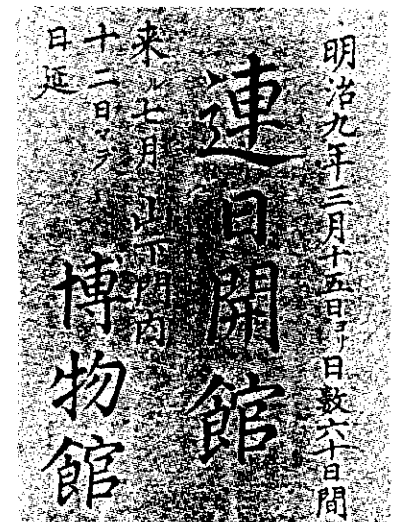 明治九年三月十五日ヨリ日数六十日間
連日開館
来ル七月
十二日マテ
日延
山下門内
博物館